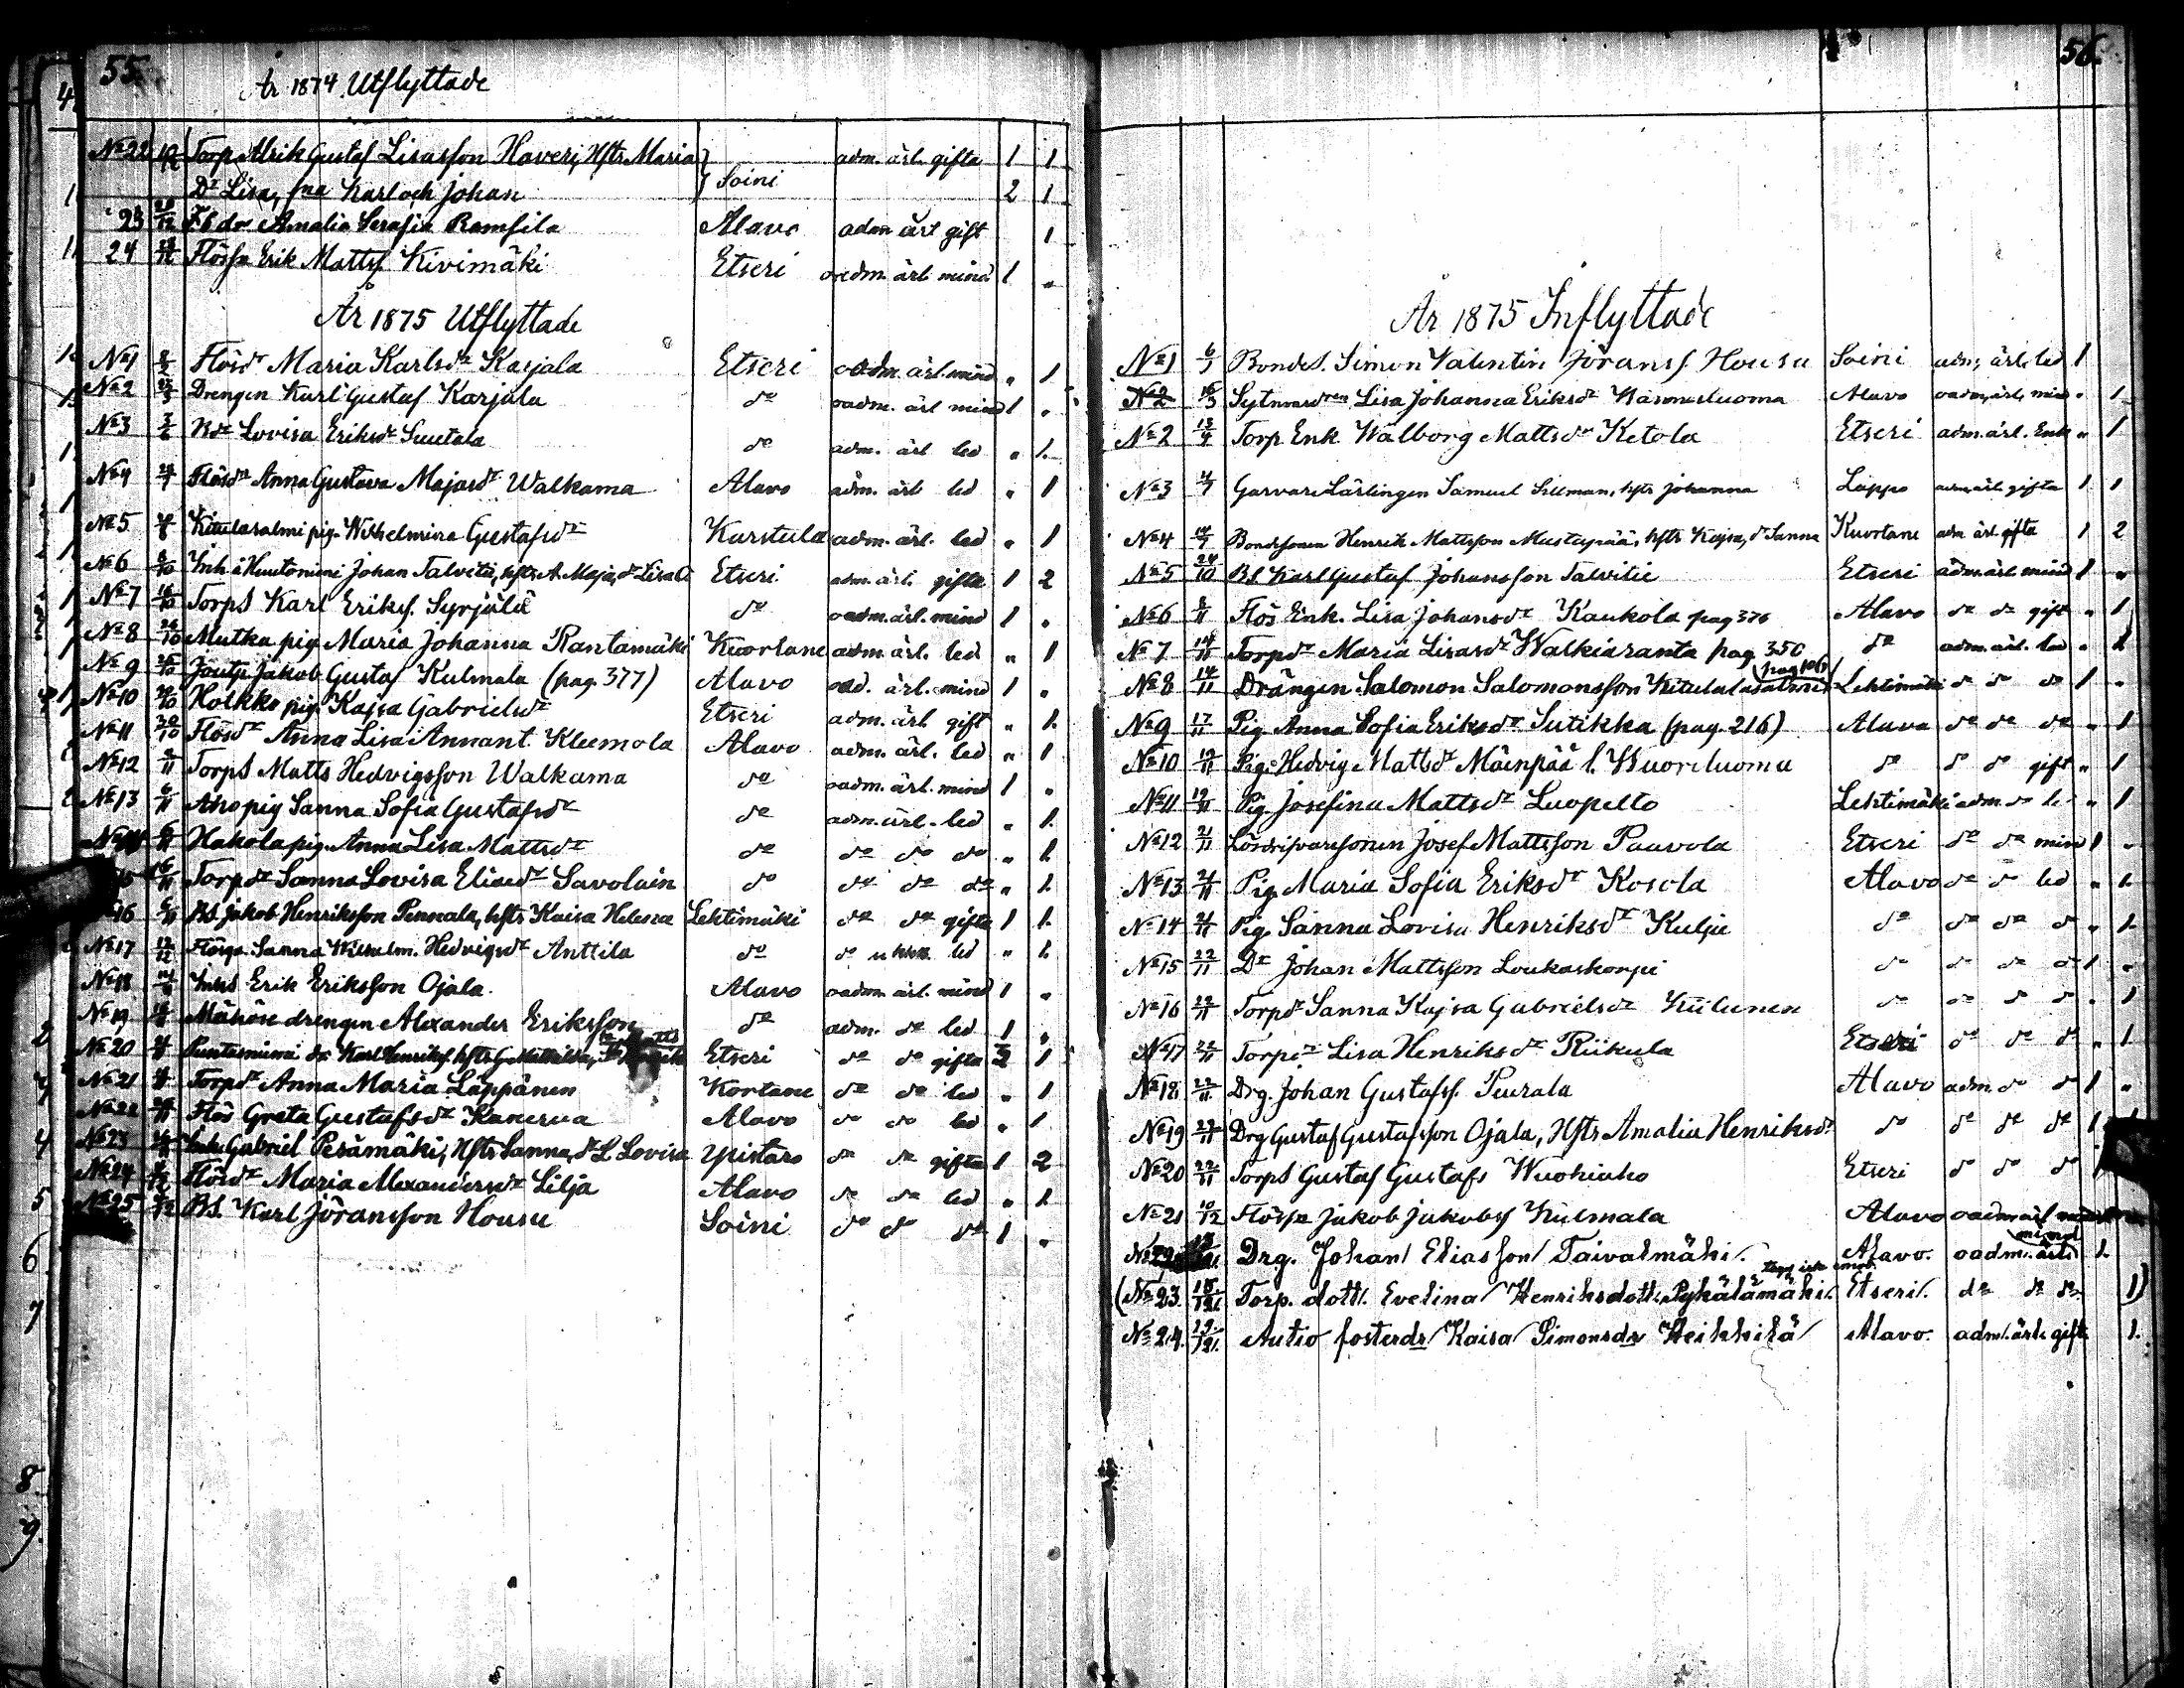 55.
År 1874 Utflyttade
No 22 19/12 Torp. Alrik Gustaf Lisasson Haveri, Hstr Maria adm. ärl. gifta 1 1
Dr Lisa, fna Karl och Johan Soini 2 1
23 Amalia Serafia Ramsila Alavo adm ärl gift 1
24 Erik Matts. Kivimäki Etseri oadm. ärl. mind 1 „
År 1875 Utflyttade
No 1 Flösdr Maria Karlsdr Karjala Etseri oadm. ärl. mind „ 1
No 2 Drengen Karl Gustaf Karjala do oadm. ärl mind 1 „
No 3 Lovisa Eriksdr Suutala do adm. ärl led „ 1.
No 4 Flösdr Anna Gustava Majasdr Walkama Alavo adm. ärl led „ 1
No 5 Kiitulasalmi pig. Wilhelmina Gustafsdr Karstula adm. ärl. led „ 1
No 6 8/10 Inh å Huutoniemi Johan Talvitie, hstr A. Maja, dr Lisa Etseri adm. ärl. gifta 1 2
No 7 16/10 TorpS Karl Eriks. Syrjälä do oadm. ärl. mind 1 „
No 8 Mutka pig. Maria Johanna Rantamäki Kuortane adm. ärl. led „ 1
No 9 Jakob Gustaf Kulmala (pag. 377) Alavo oad. ärl. mind 1 „
No 10 Holkko pig. Kajsa Gabrielsdr Etseri adm. ärl gift „ 1.
No 11 30/10 Flösdr Anna Lisa Annant. Kleemola Alavo adm. ärl. led „ 1
No 12 TorpS Matts Hedvigsson Walkama do oadm. ärl. mind 1 „
No 13 6/11 Aho pig Sanna Sofia Gustafsdr do adm. ärl. led „ 1.
Hakola pig. Anna Lisa Mattsdr do do do do „ 1.
15 Torpdr Sanna Lovisa Eliasdr Savolain do do do do „ 1.
16 BS. Jakob Henriksson Pennala, hstr Kaisa Helena Lehtimäki do do gifta 1 1.
No 17 Sanna Wilhelm. Hedvigsdr Anttila do do led „ 1.
No 18 Erik Eriksson Ojala. Alavo oadm ärl. mind 1 „
No 19 Mähöse drengen Alexander Eriksson do adm. do led 1 „
No 20 Karl Henriks. hstr G. Mathilda, Etseri do do gifta 2 1
No 21 Torpdr Anna Maria Läppänen Kortane do do led „ 1
No 22 Flös Greta Gustafsdr Kanerva Alavo do do led „ 1
No 23 Gabriel Perämäki, Hstr Sanna, dr L Lovisa Ypistaro do do gifta 1 2
No 24 Flösdr Maria Alexandersdr Lilja Alavo do do led „ 1.
No 25 BS. Karl Jöransson Housu Soini do do do 1 „
56.
År 1875 Inflyttade
No 1 BondeS. Simon Valentin Jörans. Housu Soini adm, ärl. led 1
No 2 Lisa Johanna Eriksdr Alavo oadm, ärl, mind „ 1
No 2 13/4 Torp Enk Walborg Mattsdr Ketola Etseri adm. ärl. Enk „ 1
No 3 Garvare Lärlingen Samuel Sillman, hstr Johanna Lappo adm. ärl. gifta 1 1
No 4 Bondesonen Henrik Mattsson Mustapää, hstr Kajsa, dr Sanna Kuortane adm ärl gifta 1 2
No 5 24/10 BS Karl Gustaf Johansson Talvitie Etseri adm. ärl mind 1 „
No 6 8/11 Flös Enk. Lisa Johansdr Kaukola pag 376 Alavo do do gift „ 1
No 7 14/11 Torpdr Maria Lisasdr Walkiaranta pag. 350 do adm. ärl. led „ 1
No 8 14/11 Drängen Salomon Salomonsson Kiitulalasalmi Lehtimäki do do do 1 „
No 9 17/11 Pig. Anna Sofia Eriksdr Sutikka (pag. 216) Alavo do do do „ 1
No 10 19/11 Pig. Hedvig Mattsdr Mäenpää l. Wuoriluoma do do do gift „ 1
No 11 19/11 Pig. Josefina Mattsdr Luopelto Lehtimäki adm. do led „ 1
No 12 21/11 Josef Mattsson Paavola Etseri do do mind 1 „
No 13 21/11 Pig. Maria Sofia Eriksdr Kosola Alavo do do led „ 1.
No 14 21/11 Pig. Sanna Lovisa Henriksdr Kulju do do do do „ 1.
No 15 22/11 Dr Johan Mattsson Loukaskorpi do do do do 1 „
No 16 22/11 Torpdr Sanna Kajsa Gabrielsdr Kiilunen do do do do „ 1
No 17 22/11 Torpdr Lisa Henriksdr Riikula Etseri do do do „ 1
No 18 22/11 Drg. Johan Gustafs. Peurala Alavo adm do do 1 „
No 19 22/11 Drg Gustaf Gustafsson Ojala, Hstr Amalia Henriksdr do do do do 1
No 20 22/11 TorpS Gustaf Gustafs Wuohiaho Etseri do do do 1
No 21 10/12 Jakob Jakobs Kulmala Alavo oadm ärl
No 22 Drg. Johan Eliasson Taivalmäki. Alavo. oadm. ärl. mind 1.
(No 23. 18/12. Torp. dott. Evelina Henriksdott. Pykälämäki. Etseri. do do do 1)
No 24. 19/12. Autio fosterdr Kaisa Simonsdr Heikkilä Alavo. adm. ärl. gift 1.